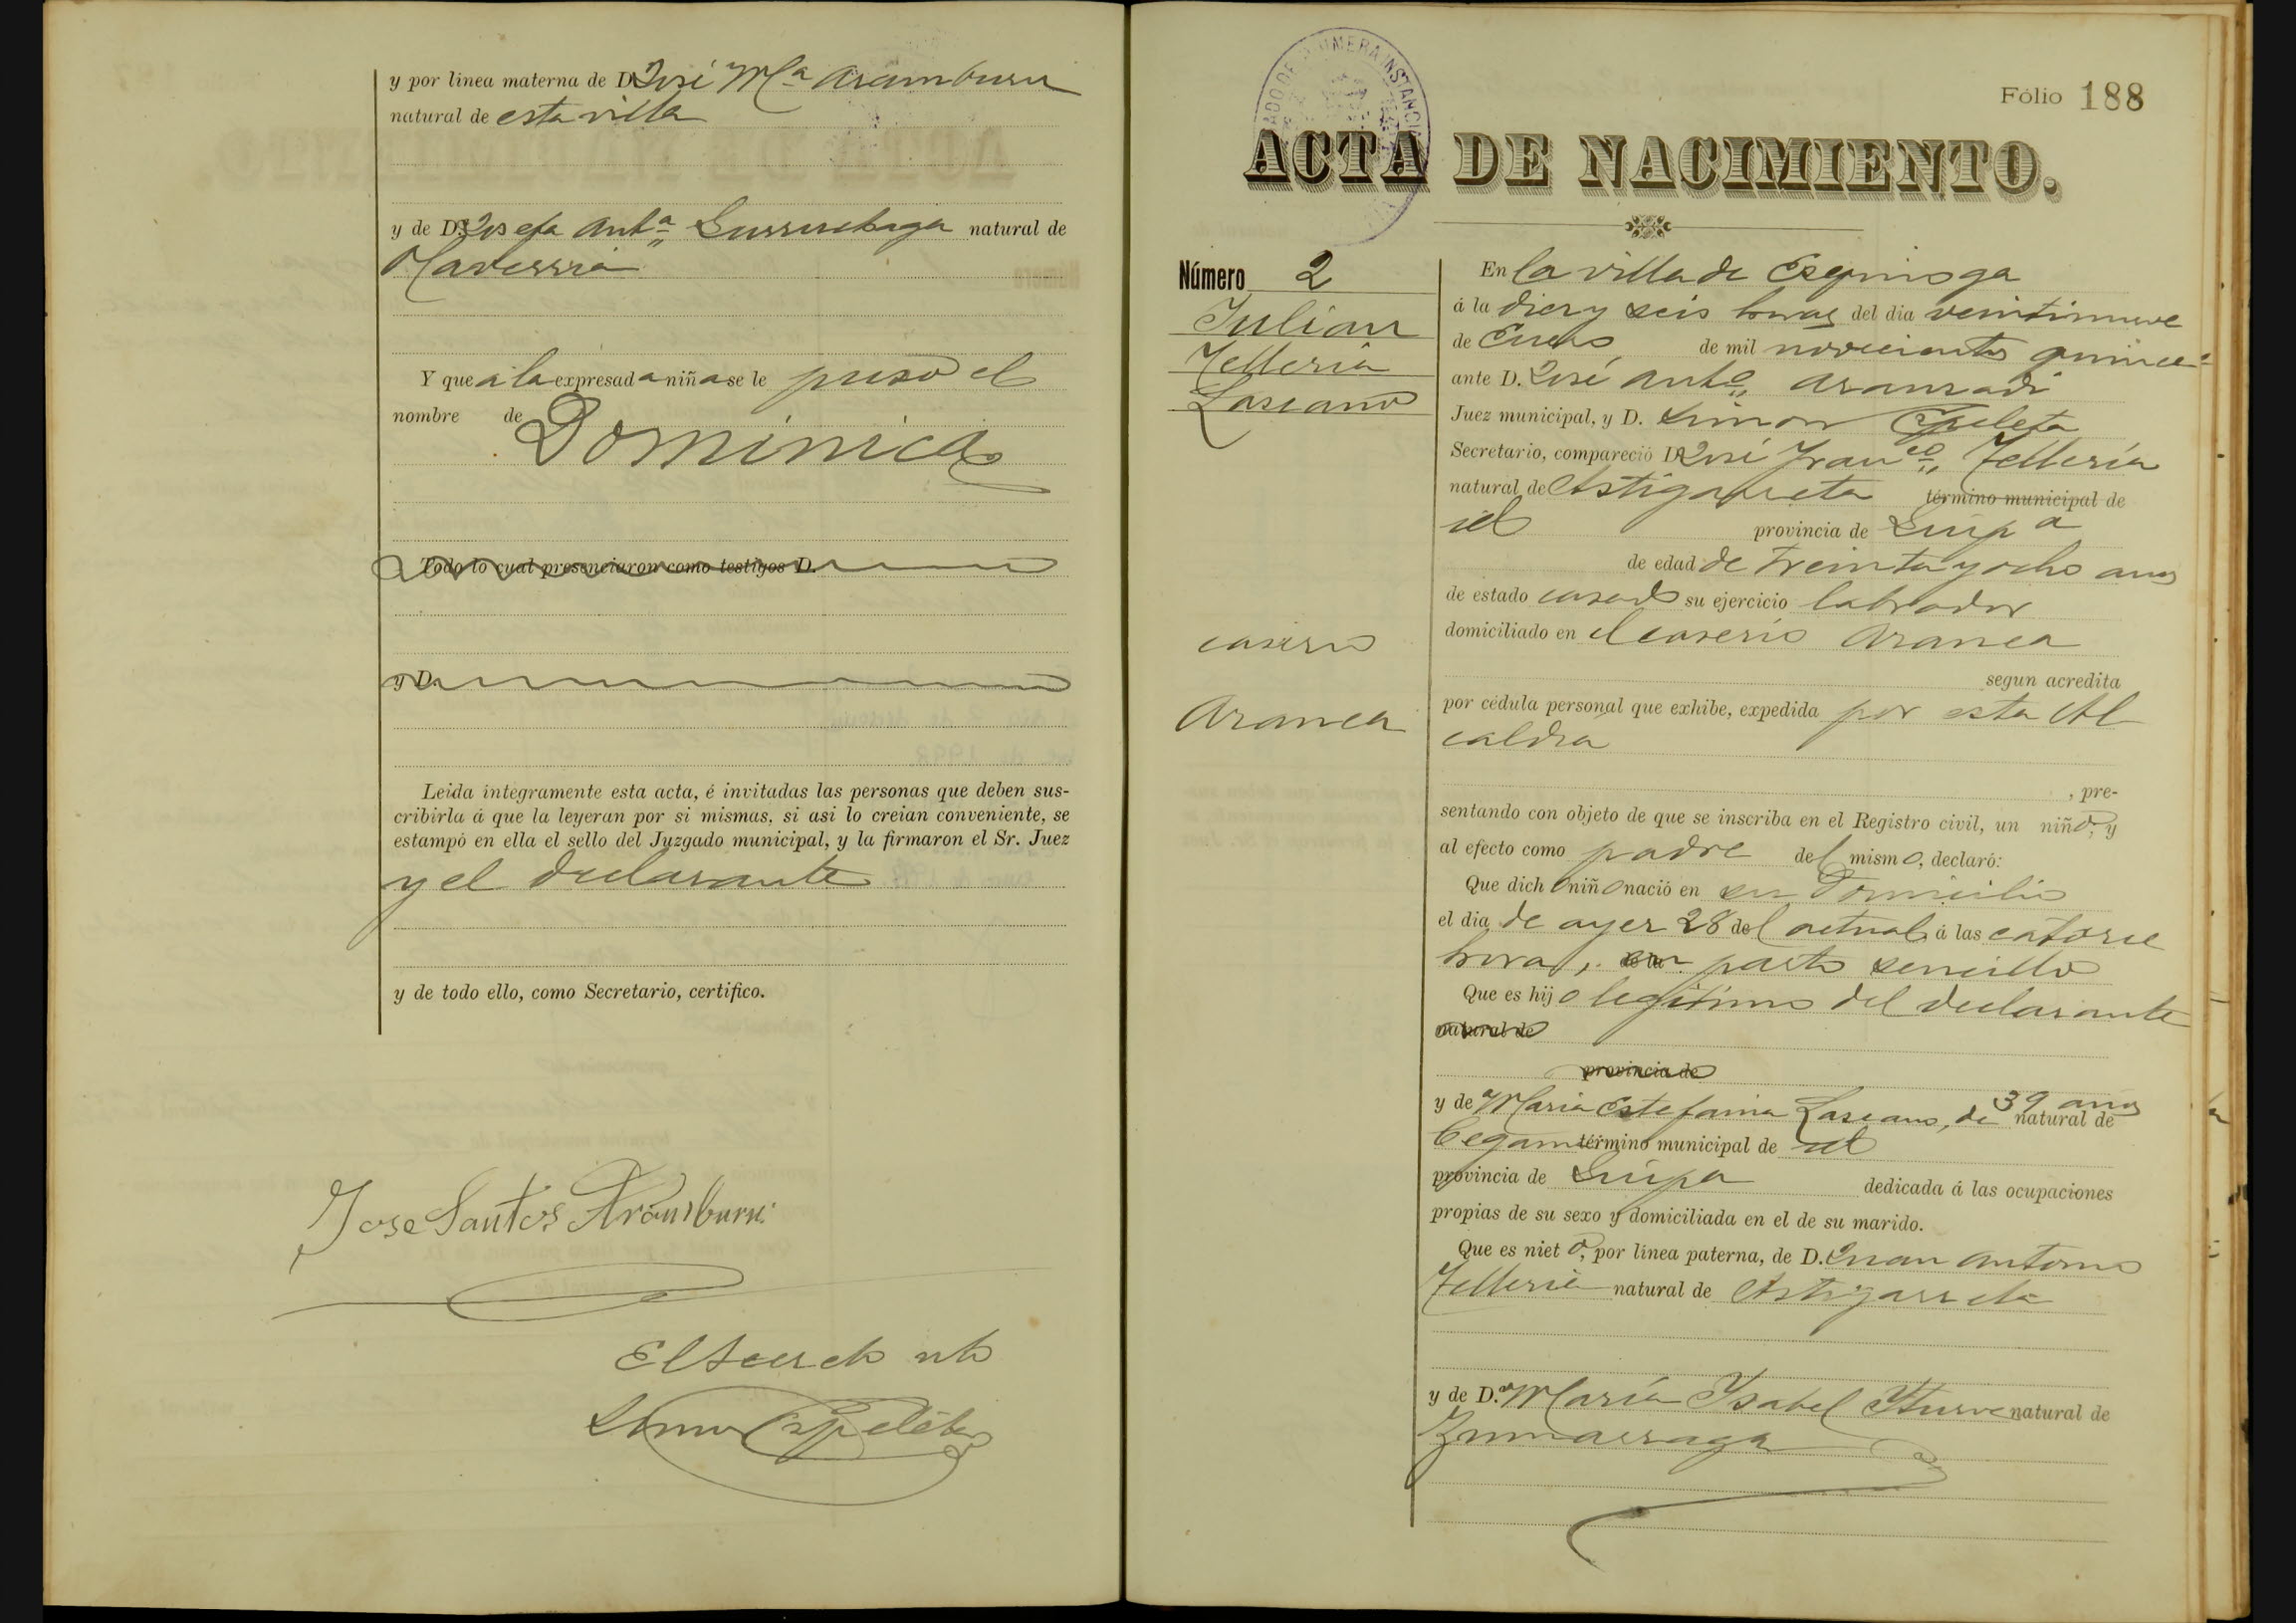 y por línea materna de D José Mª Aramburu
natural de esta villa
y de D.ª Josefa Antª Gurruchaga natural de
Olaverria
Y que a la expresada niña se le puso el
nombre de
Dominica
Todo lo cual presenciaron como testigos D.
y D.
Leida íntegramente esta acta, é invitadas las personas que deben sus-
cribirla á que la leyeran por si mismas, si asi lo creian conveniente, se
estampó en ella el sello del Juzgado municipal, y la firmaron el Sr. Juez
y el declarante
y de todo ello, como Secretario, certifico.
Jose Santos Aramburu
El Secretº
Simon
Fólio 188
ACTA DE NACIMIENTO.
Número 2
Julian
Telleria
Lascano
caserio
Aranea
En la villa de Ezquioga
á la diez y seis horas del dia veintinueve
de Enero de mil novecientos quince
ante D. José Antº Aranzadi
Juez municipal, y D. Simon
Secretario, compareció D José Francº Tellería
natural de Astigarreta término municipal de
id provincia de Guipª
de edad de treinta y ocho años
de estado casado su ejercicio labrador
domiciliado en el caserio Aranea
segun acredita
por cédula personal que exhibe, expedida por esta Al
caldia
, pre-
sentando con objeto de que se inscriba en el Registro civil, un niño, y
al efecto como padre del mismo, declaró:
Que dicho niño nació en su domicilio
el dia de ayer 28 del actual á las catorce
horas, en parto sencillo
Que es hijo legitimo del declarante
natural de
provincia de
y de Dª Maria Estefania Lascano, de 39 años natural de
Cegama término municipal de id
provincia de Guipª dedicada á las ocupaciones
propias de su sexo y domiciliada en el de su marido.
Que es nieto, por línea paterna, de D. Juan Antonio
Telleria natural de Astigarreta
y de D.ª María Ysabel Yturve natural de
Zumarraga